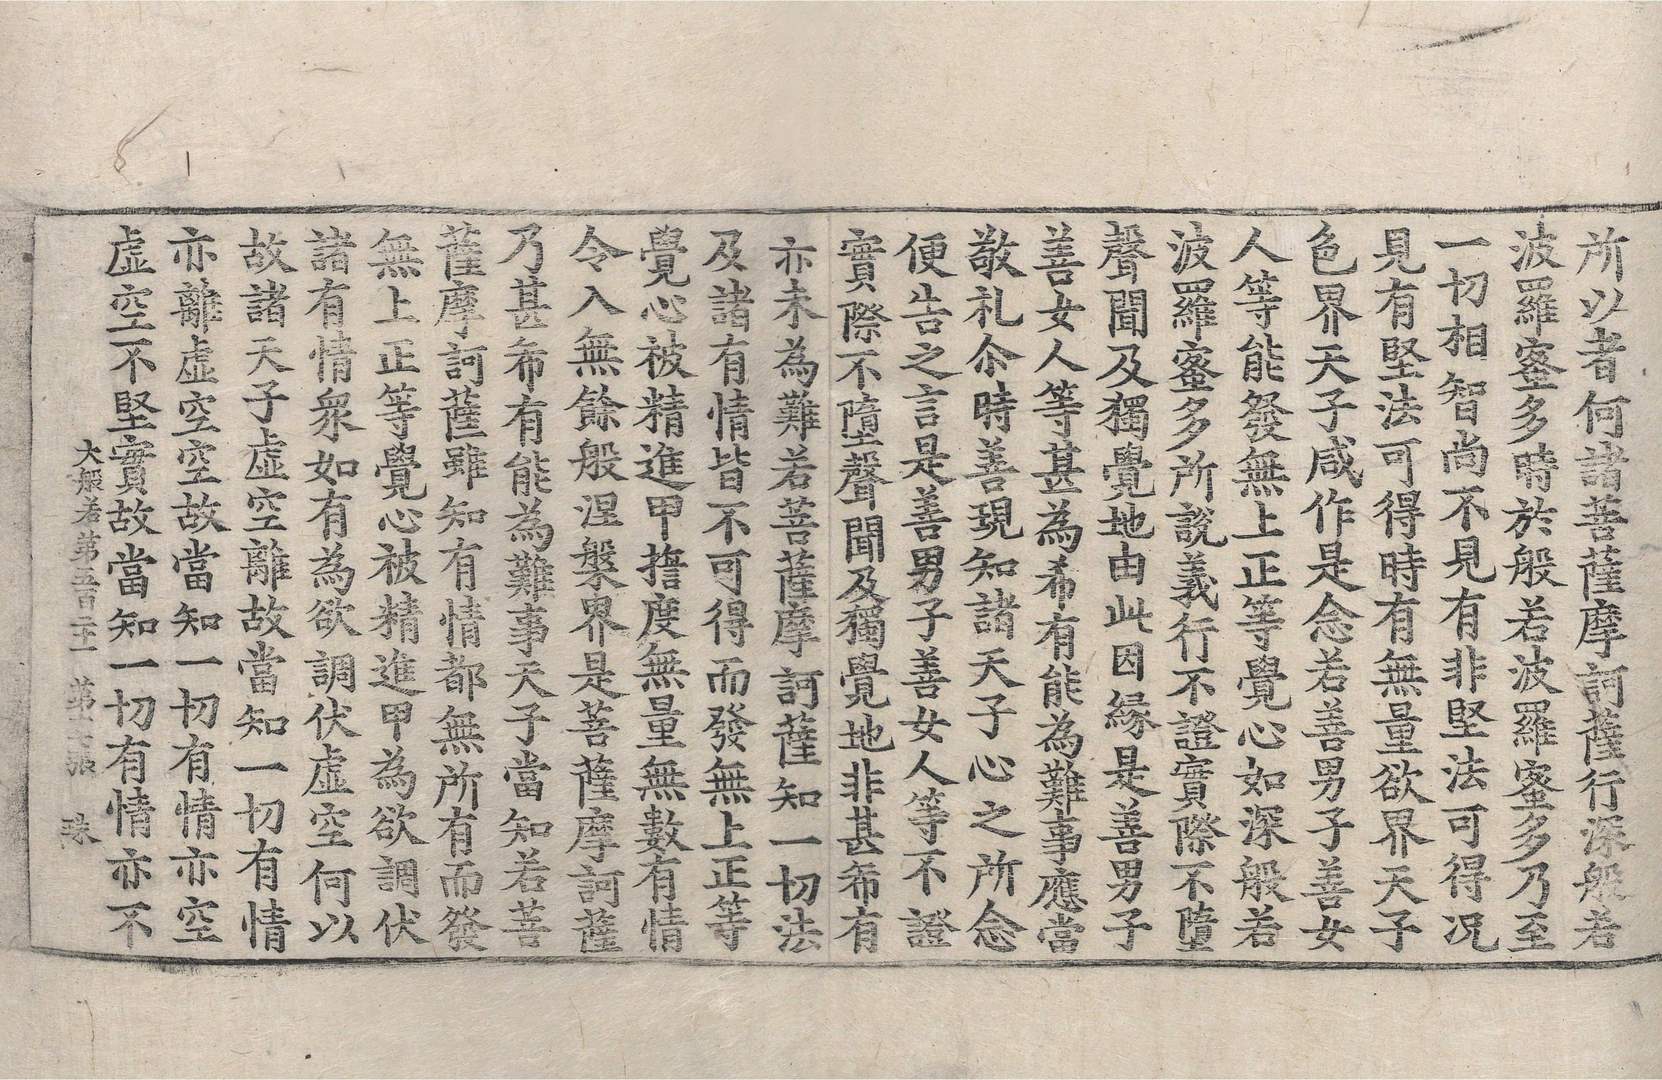 所以者何諸菩薩摩訶薩行深般若
波羅蜜多時於般若波羅蜜多乃至
一切相智尚不見有非堅法可得況
見有堅法可得時有無量欲界天子
色界天子咸作是念若善男子善女
人等能發無上正等覺心如深般若
波羅蜜多所說義行不證實際不墮
聲聞及獨覺地由此因緣是善男子
善女人等甚為希有能為難事應當
敬礼尒時善現知諸天子心之所念
便告之言是善男子善女人等不證
實際不墮聲聞及獨覺地非甚希有
亦未為難若菩薩摩訶薩知一切法
及諸有情皆不可得而發無上正等
覺心被精進甲擔度無量無數有情
令入無餘般涅槃界是菩薩摩訶薩
乃甚希有能為難事天子當知若菩
薩摩訶薩雖知有情都無所有而發
無上正等覺心被精進甲為欲調伏
諸有情眾如有為欲調伏虛空何以
故諸天子虛空離故當知一切有情
亦離虛空空故當知一切有情亦空
虛空不堅實故當知一切有情亦不
大般若第五百二十一 第張